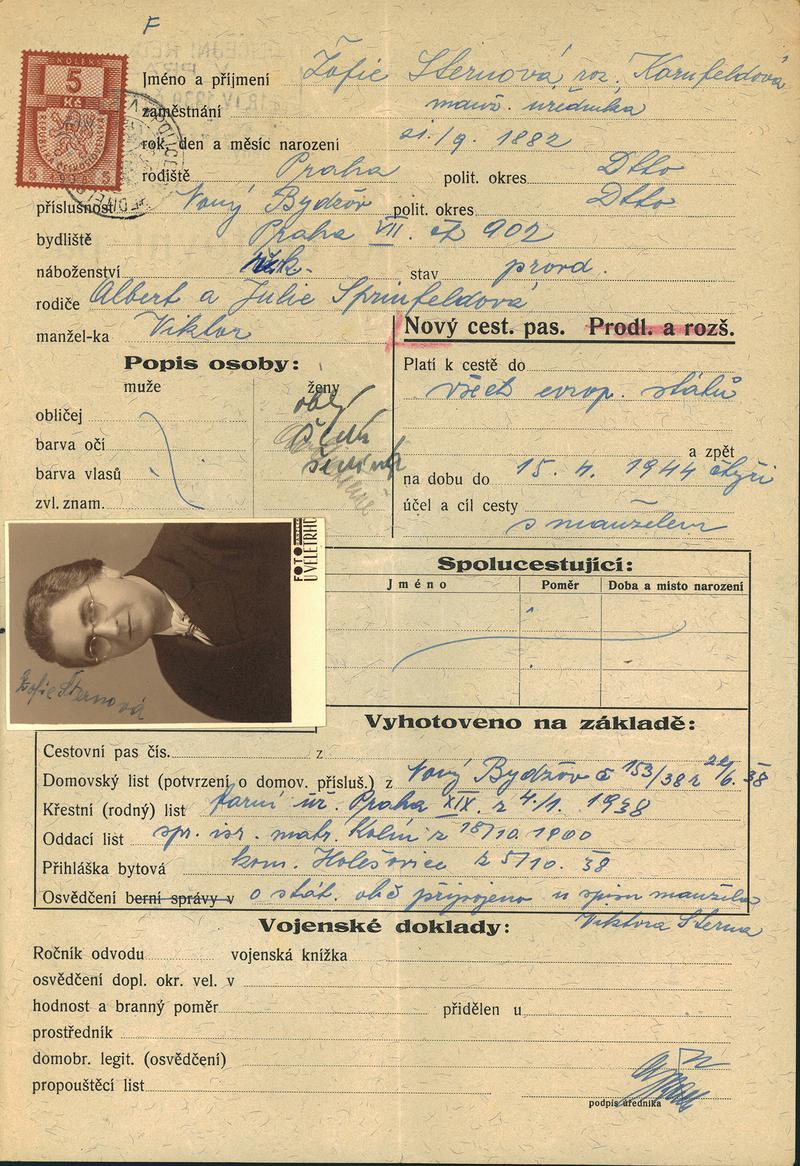 F
KOLEK
5
Kč
5 5
Jméno a příjmení Žofie Sternová, roz. Kornfeldová
zaměstnání manž. úředníka
rok, den a měsíc narození 21./9. 1882
rodiště Praha polit. okres Dtto
příslušnost Nový Bydžov polit. okres Dtto
bydliště Praha VII. čp 902
náboženství řk. stav provd.
rodiče Albert a Julie
manžel-ka Viktor
Nový cest. pas. Prodl. a rozš.
Popis osoby:
muže ženy
obličej obl.
barva očí
barva vlasů
zvl. znam.
Platí k cestě do
všech evrop. států
a zpět
na dobu do 15. 4. 1944 čtyři
účel a cíl cesty
s manželem
FOTO
U VELETRHŮ
Žofie Sternová
Spolucestující:
Jméno Poměr Doba a místo narození
Vyhotoveno na základě:
Cestovní pas čís. z
Domovský list (potvrzení o domov. přísluš.) z Nový Bydžov č 153/38 z 22/6. 38
Křestní (rodný) list farní úř. Praha XIX. z 4./1. 1938
Oddací list spr. isr. matr. Kolín z 18/10. 1900
Přihláška bytová kom. Holešovice z 5/10. 38
Osvědčení berní správy v o stát. obč připojeno u spisu manžela
Viktora Sterna
Vojenské doklady:
Ročník odvodu vojenská knížka
osvědčení dopl. okr. vel. v
hodnost a branný poměr přidělen u
prostředník
domobr. legit. (osvědčení)
propouštěcí list
podpis úředníka